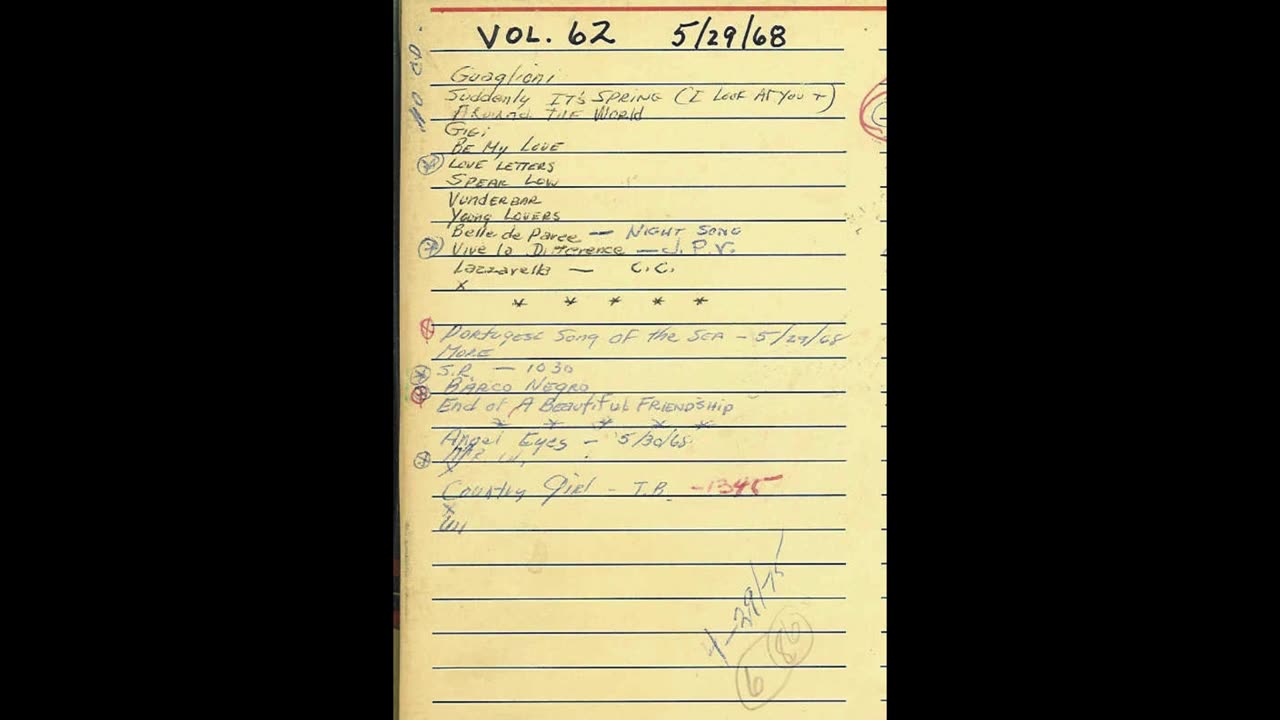 VOL. 62 5/29/68
NO CD.
Guaglioni
Suddenly IT'S SPRING (I LOOK AT YOU +)
AROUND THE World
GiGi
BE MY LOVE
LOVE LETTERS
SPEAK LOW
VUNDERBAR
Young LOVERS
Belle de Paree — NIGHT SONG
Vive la Difference — J. P. V.
Lazzarella — C.C.
x
* * * * *
Portugese Song OF the SEA - 5/29/68
MORE
S.R. — 1030
BARCO NEGRO
End of A Beautiful FRIENDSHIP
* * * * *
Angel Eyes - 5/30/68
x
Country Girl - T.B. -1345
x
4-29/75
86
6